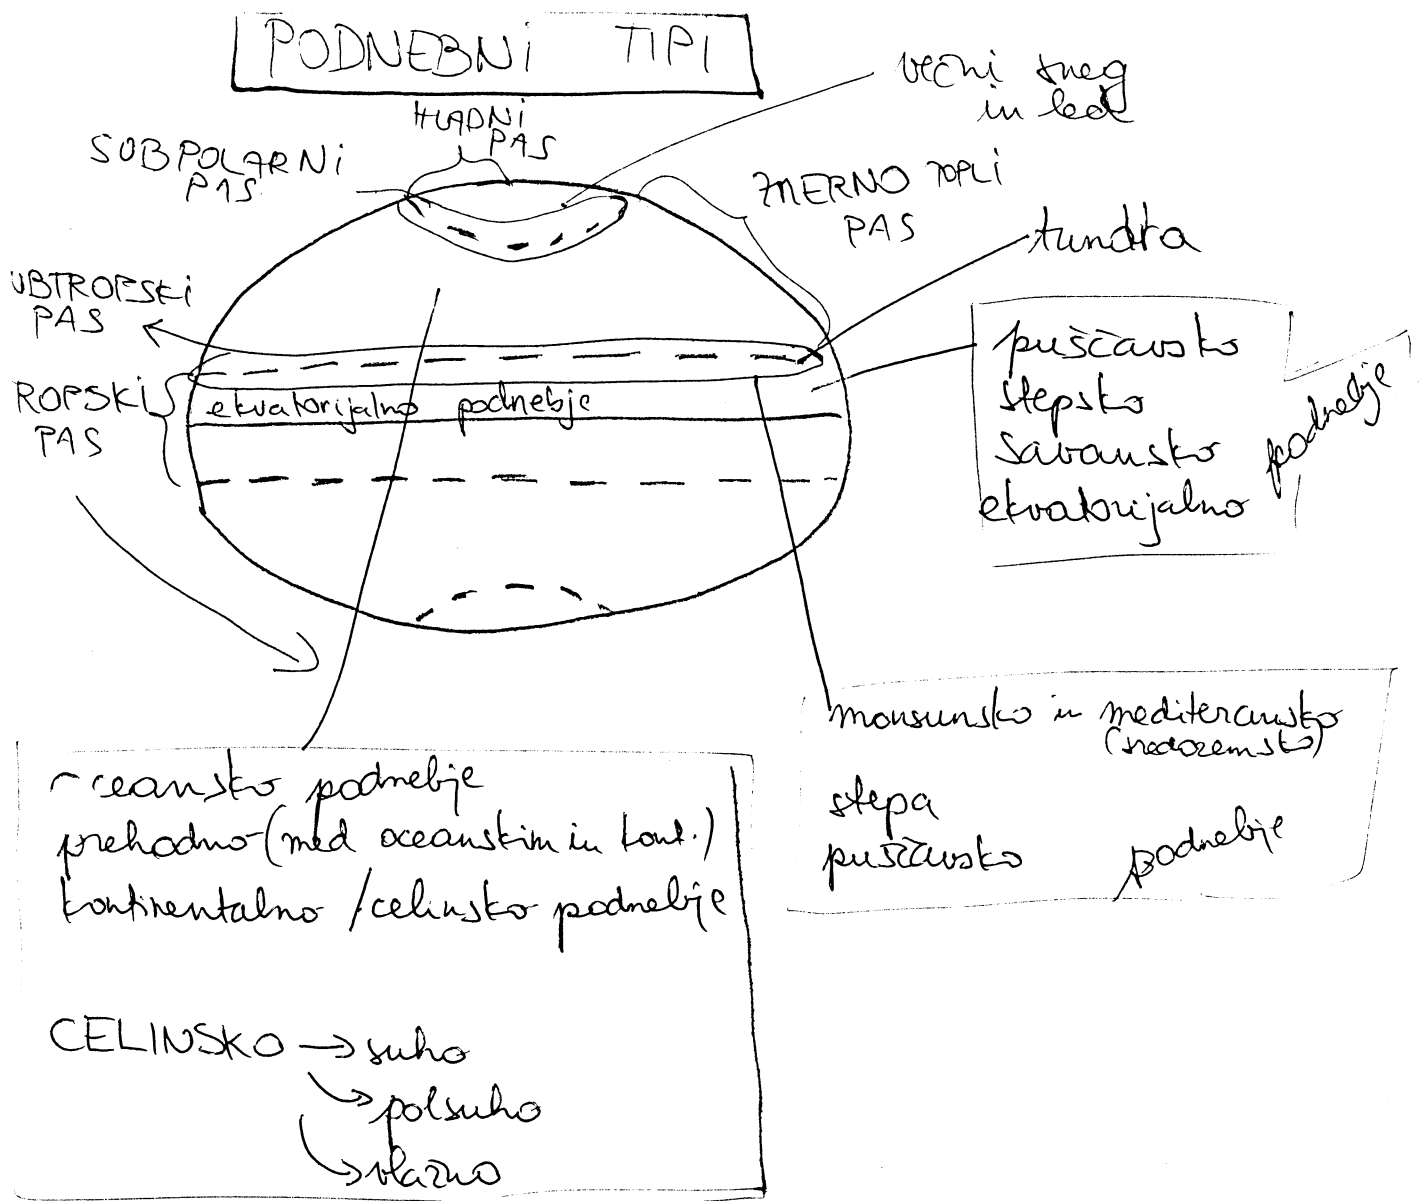 PODNEBNI TIPI
HLADNI
PAS
večni sneg
in led
SUBPOLARNI
PAS
ZMERNO TOPLI
PAS
tundra
UBTROPSKI
PAS
ROPSKI
PAS
ekvatorijalno podnebje
puščavsko
stepsko
savansko
ekvatorijalno
podnebje
monsunsko in mediteransko
(sredozemsko)
stepa
puščavsko
podnebje
ceansko podnebje
prehodno-(med oceanskim in kont.)
kontinentalno /celinsko podnebje
CELINSKO → suho
→ polsuho
→ vlažno